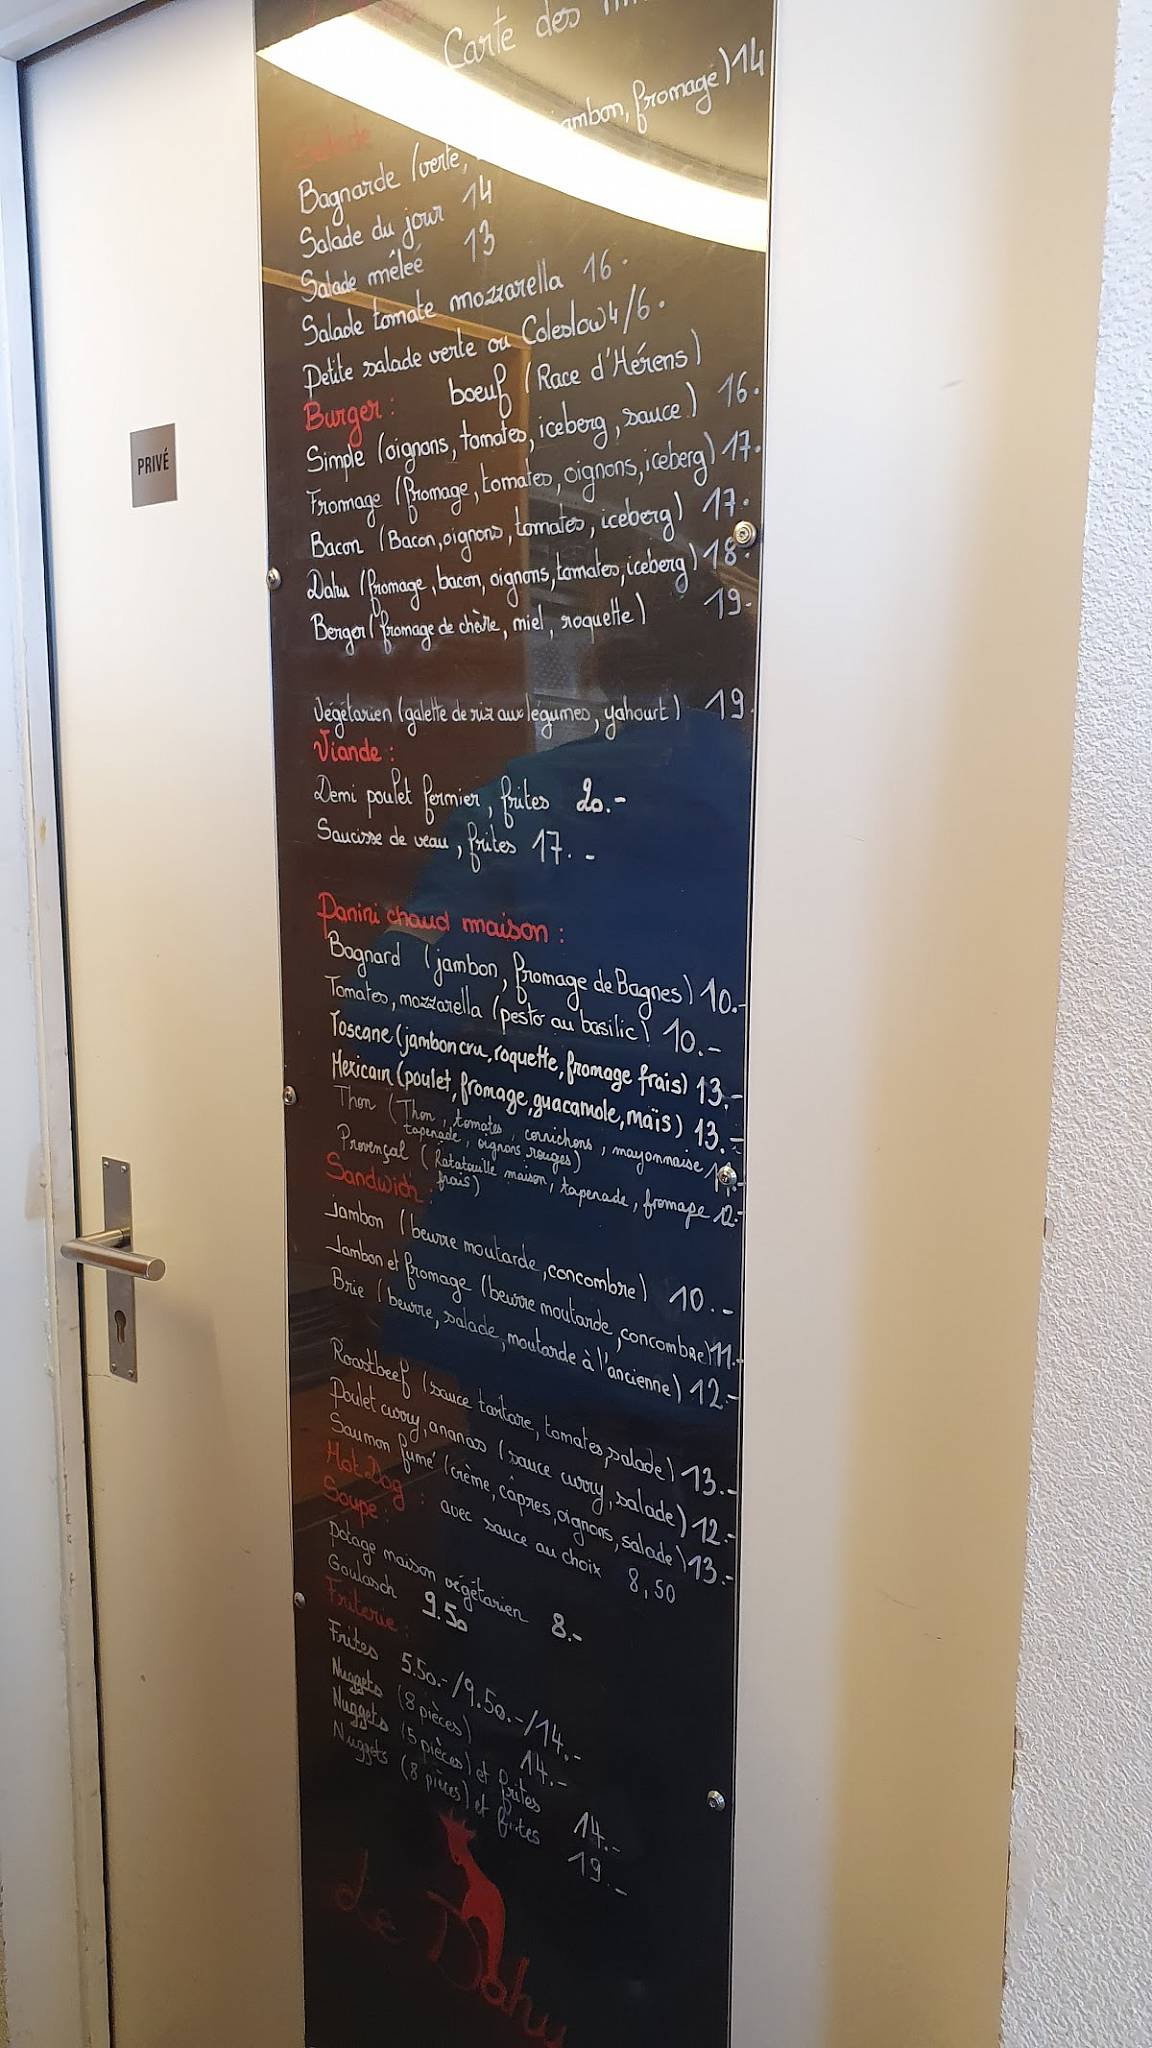 Carte des
Salade
Bagnarde (verte, jambon, fromage) 14
Salade du jour 14
Salade mêleé 13
Salade tomate mozzarella 16.
Petite salade verte ou Coleslow 4/6.
Burger : boeuf (Race d'Hérens)
Simple (oignons, tomates, iceberg, sauce) 16.
Fromage (fromage, tomates, oignons, iceberg) 17.
Bacon (Bacon, oignons, tomates, iceberg) 17.
Dahu (fromage, bacon, oignons, tomates, iceberg) 18.
Berger (fromage de chèvre, miel, roquette) 19.
Végétarien (galette de riz aux légumes, yahourt) 19.
Viande :
Demi poulet fermier, frites 20.-
Saucisse de veau, frites 17.-
Panini chaud maison :
Bagnard (jambon, fromage de Bagnes) 10.-
Tomates, mozzarella (pesto au basilic) 10.-
Toscane (jambon cru, roquette, fromage frais) 13.-
Mexicain (poulet, fromage, guacamole, maïs) 13.-
Thon (Thon, tomates, cornichons, mayonnaise
tapenade, oignons rouges)
Provençal (Ratatouille maison, tapenade, fromage 12.-
frais)
Sandwich :
Jambon (beurre moutarde, concombre) 10.-
Jambon et fromage (beurre moutarde, concombre) 11.-
Brie (beurre, salade, moutarde à l'ancienne) 12.-
Roastbeef (sauce tartare, tomates, salade) 13.-
Poulet curry, ananas (sauce curry, salade) 12.-
Saumon fumé (crème, câpres, oignons, salade) 13.-
Hot-Dog : avec sauce au choix 8,50
Soupe :
Potage maison végétarien 8.-
Goulasch 9.50
Friterie :
Frites 5.50.-/9.50.-/14.-
Nuggets (8 pièces) 14.-
Nuggets (5 pièces) et frites 14.-
Nuggets (8 pièces) et frites 19.-
Le Dahu
PRIVÉ